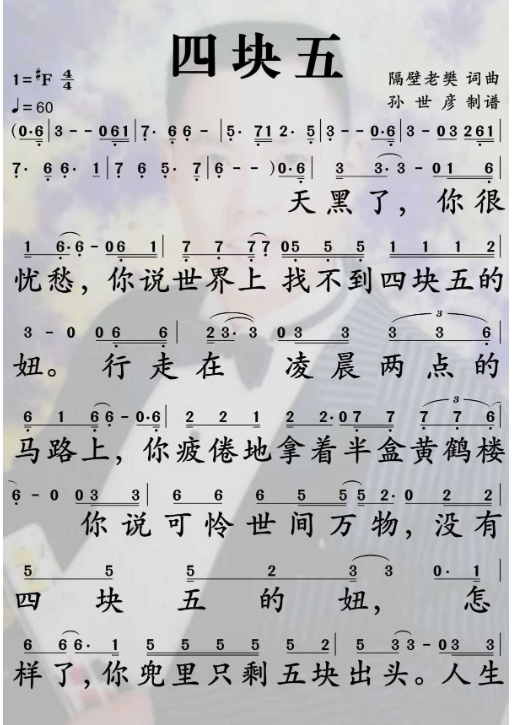 四块五
1=#F 4/4
隔壁老樊 词曲
♩=60
孙世彦 制谱
(0·6|3 - - 061|7· 66 -|5· 71 2· 5|3 - - 0·6|3 - 03 261|
7· 6 6· 1|7 6 5· 7|6 - - )0·6| 3 3·3 - 01 6|
天黑了，你很
1 6·6 - 06 1|7 7 7 77|05 5 5 1 1 1 2|
忧愁，你说世界上 找不到四块五的
3 - 0 06 6|23·3 03 3 3 3 6|
妞。行走在 凌晨两点的
6 1 66 - 0·6|2 2 1 2 2·07 7 7 7 6|
马路上，你疲倦地拿着半盒黄鹤楼
6 - 0 03 3|6 6 6 5 55 2· 0 2 2|
你说可怜世间万物，没有
5 5 5 2 3 3 |0· 1|
四块五的妞，怎
6 66· 1|5 5 5 5 5 2|5 33 - 03 3|
样了，你兜里只剩五块出头。人生